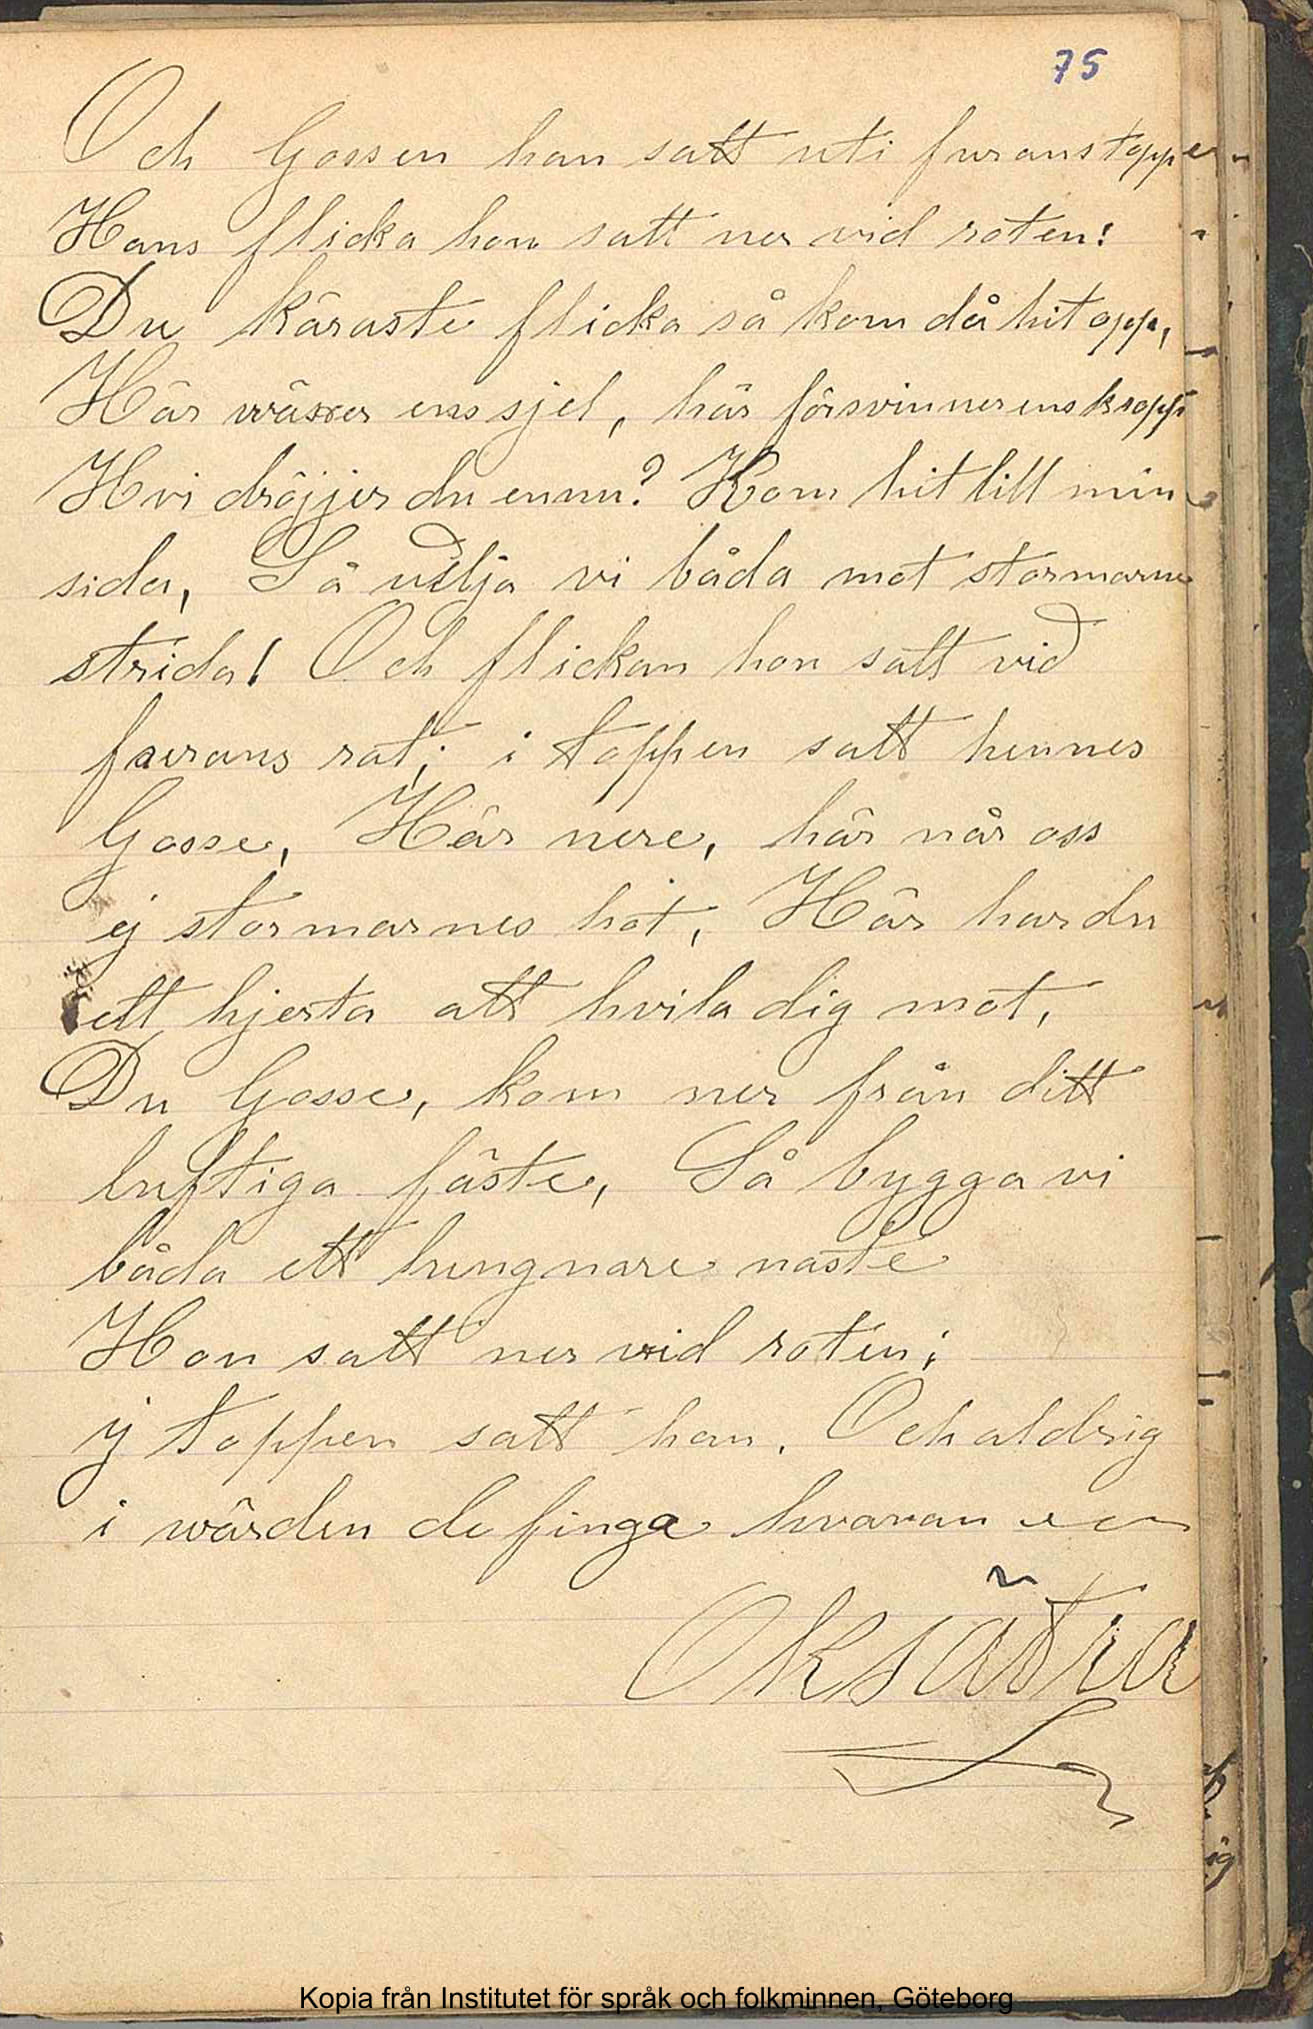 75
Och Gossen han satt uti furanstoppen
Hans flicka hon satt ner vid roten:
Du käraste flicka så kom då hit opp,
Här wäxer ens sjel, här försvinner ens kropp
Hvi dröjjer du ennu? Kom hit till min
sida, Så vilja vi båda mot stormarne
strida! Och flickan hon satt vid
furans rot; i toppen satt hennes
Gosse, Här nere, här når oss
ej stormarnes hot, Här har du
ett hjerta att hvila dig mot,
Du Gosse, kom ner från ditt
luftiga fäste, Så bygga vi
båda ett hungnare näste
Hon satt ner vid roten;
ij toppen satt han. Och aldrig
i wärden de finga hvaran
Oksätra
Kopia från Institutet för språk och folkminnen, Göteborg